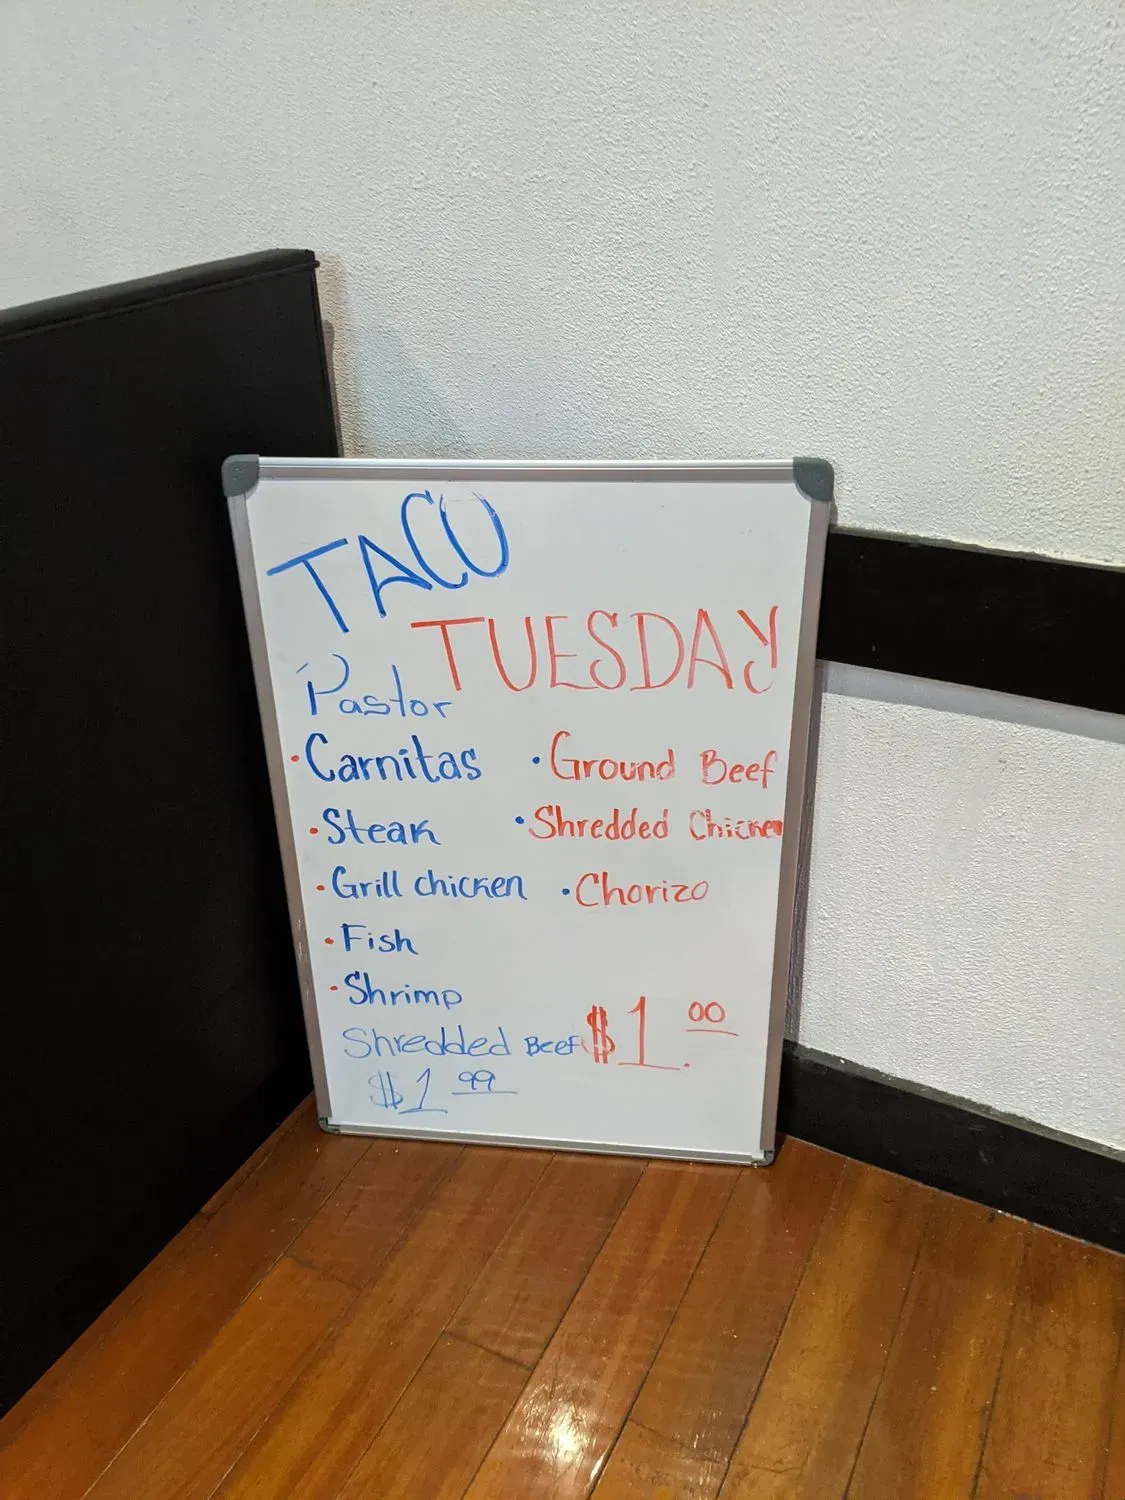 TACO
TUESDAY
Pastor
• Carnitas
• Steak
• Grill chicken
• Fish
• Shrimp
Shredded Beef
$1 99
• Ground Beef
• Shredded Chicken
• Chorizo
$1. 00